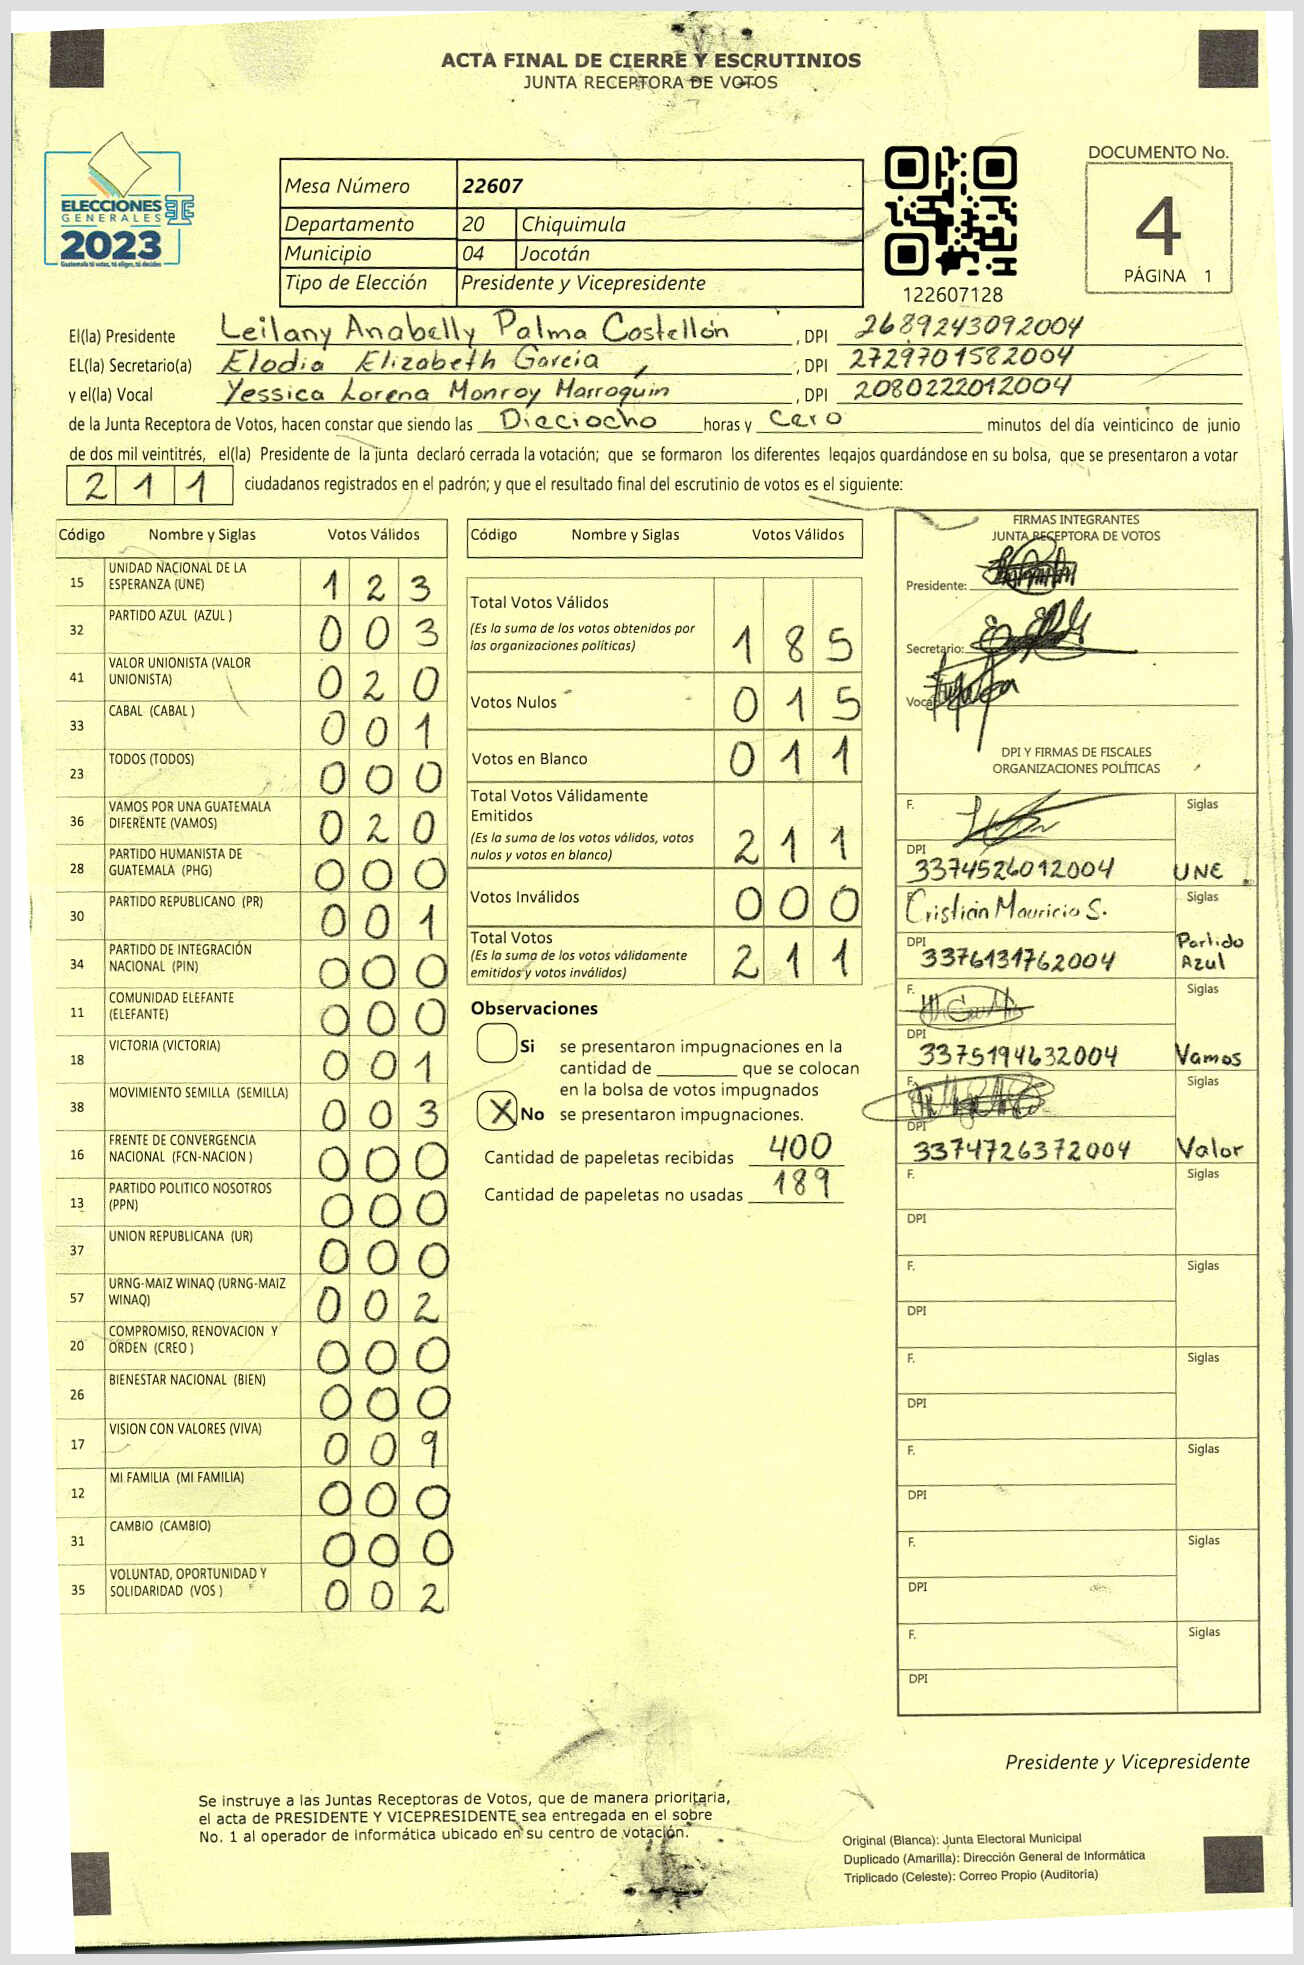 ACTA FINAL DE CIERRE Y ESCRUTINIOS
JUNTA RECEPTORA DE VOTOS
ELECCIONES
GENERALES
2023
Guatemala tú votas, tú eliges, tú decides
Mesa Número 22607
Departamento 20 Chiquimula
Municipio 04 Jocotán
Tipo de Elección Presidente y Vicepresidente
122607128
DOCUMENTO No.
4
PÁGINA 1
El(la) Presidente Leilany Anabelly Palma Costellón, DPI 2689243092004
EL(la) Secretario(a) Elodia Elizabeth García, DPI 2729701582004
y el(la) Vocal Yessica Lorena Monroy Marroquin, DPI 2080222012004
de la Junta Receptora de Votos, hacen constar que siendo las Dieciocho horas y cero minutos del día veinticinco de junio
de dos mil veintitrés, el(la) Presidente de la junta declaró cerrada la votación; que se formaron los diferentes legajos guardándose en su bolsa, que se presentaron a votar
211 ciudadanos registrados en el padrón; y que el resultado final del escrutinio de votos es el siguiente:
Código Nombre y Siglas Votos Válidos
15 UNIDAD NACIONAL DE LA ESPERANZA (UNE) 123
32 PARTIDO AZUL (AZUL ) 003
41 VALOR UNIONISTA (VALOR UNIONISTA) 020
33 CABAL (CABAL ) 001
23 TODOS (TODOS) 000
36 VAMOS POR UNA GUATEMALA DIFERENTE (VAMOS) 020
28 PARTIDO HUMANISTA DE GUATEMALA (PHG) 000
30 PARTIDO REPUBLICANO (PR) 001
34 PARTIDO DE INTEGRACIÓN NACIONAL (PIN) 000
11 COMUNIDAD ELEFANTE (ELEFANTE) 000
18 VICTORIA (VICTORIA) 001
38 MOVIMIENTO SEMILLA (SEMILLA) 003
16 FRENTE DE CONVERGENCIA NACIONAL (FCN-NACION ) 000
13 PARTIDO POLITICO NOSOTROS (PPN) 000
37 UNION REPUBLICANA (UR) 000
57 URNG-MAIZ WINAQ (URNG-MAIZ WINAQ) 002
20 COMPROMISO, RENOVACION Y ORDEN (CREO ) 000
26 BIENESTAR NACIONAL (BIEN) 000
17 VISION CON VALORES (VIVA) 009
12 MI FAMILIA (MI FAMILIA) 000
31 CAMBIO (CAMBIO) 000
35 VOLUNTAD, OPORTUNIDAD Y SOLIDARIDAD (VOS ) 002
Código Nombre y Siglas Votos Válidos
Total Votos Válidos
(Es la suma de los votos obtenidos por
las organizaciones políticas) 185
Votos Nulos 015
Votos en Blanco 011
Total Votos Válidamente
Emitidos
(Es la suma de los votos válidos, votos
nulos y votos en blanco) 211
Votos Inválidos 000
Total Votos
(Es la suma de los votos válidamente
emitidos y votos inválidos) 211
Observaciones
Si se presentaron impugnaciones en la
cantidad de ________ que se colocan
en la bolsa de votos impugnados
X No se presentaron impugnaciones.
Cantidad de papeletas recibidas 400
Cantidad de papeletas no usadas 189
FIRMAS INTEGRANTES
JUNTA RECEPTORA DE VOTOS
Presidente:
Secretario:
Vocal
DPI Y FIRMAS DE FISCALES
ORGANIZACIONES POLÍTICAS
F. Siglas
DPI
3374526012004 UNE
Cristián Mauricio S. Siglas
DPI
3376131762004 Partido Azul
F. Siglas
DPI
3375194632004 Vamos
F. Siglas
DPI
3374726372004 Valor
F. Siglas
DPI
F. Siglas
DPI
F. Siglas
DPI
F. Siglas
DPI
F. Siglas
DPI
F. Siglas
DPI
Presidente y Vicepresidente
Se instruye a las Juntas Receptoras de Votos, que de manera prioritaria,
el acta de PRESIDENTE Y VICEPRESIDENTE sea entregada en el sobre
No. 1 al operador de informática ubicado en su centro de votación.
Original (Blanca): Junta Electoral Municipal
Duplicado (Amarilla): Dirección General de Informática
Triplicado (Celeste): Correo Propio (Auditoría)